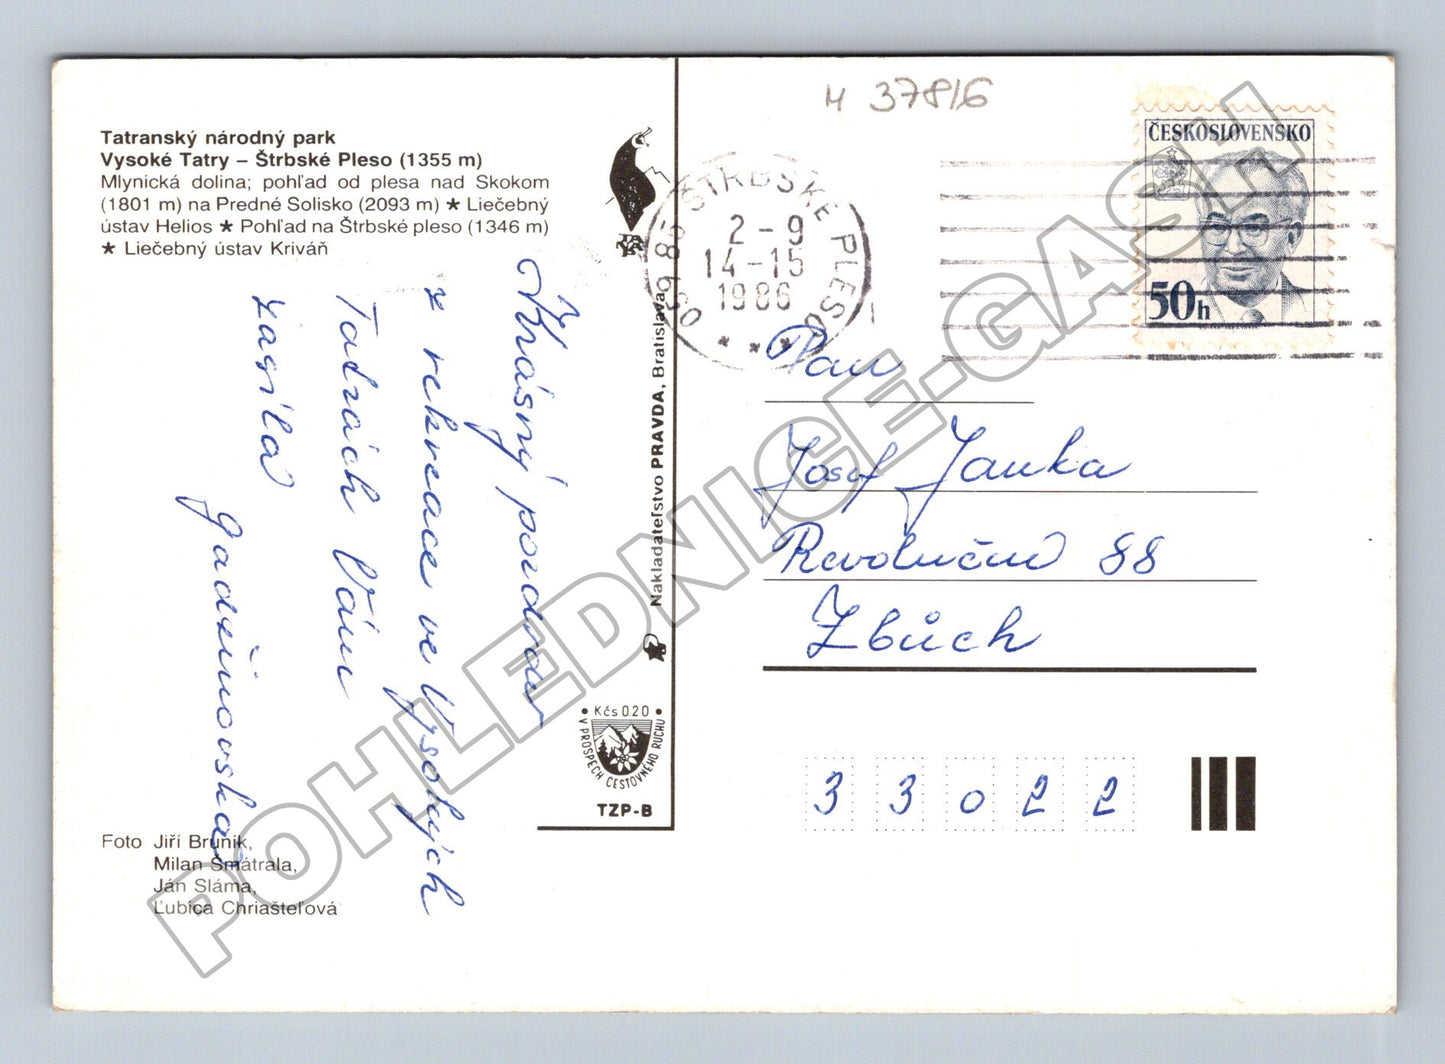 Tatranský národný park
Vysoké Tatry – Štrbské Pleso (1355 m)
Mlynická dolina; pohľad od plesa nad Skokom
(1801 m) na Predné Solisko (2093 m) ★ Liečebný
ústav Helios ★ Pohľad na Štrbské pleso (1346 m)
★ Liečebný ústav Kriváň
Krásný pozdrav
z rekreace ve Vysokých
Tatrách Vám
zasílá
Foto Jiří Bruník,
Milan Smatrala,
Ján Sláma,
Ľubica Chriašteľová
Nakladateľstvo PRAVDA, Bratislava
• Kčs 0.20 •
V PROSPECH CESTOVNÉHO RUCHU
TZP-B
M 378/6
ŠTRBSKÉ PLESO
059 85
2-9
14-15
1986
★ ★ ★
ČESKOSLOVENSKO
50h
Pan
Josef Janka
Revoluční 88
Zbůch
33022
POHLEDNICE-GASH